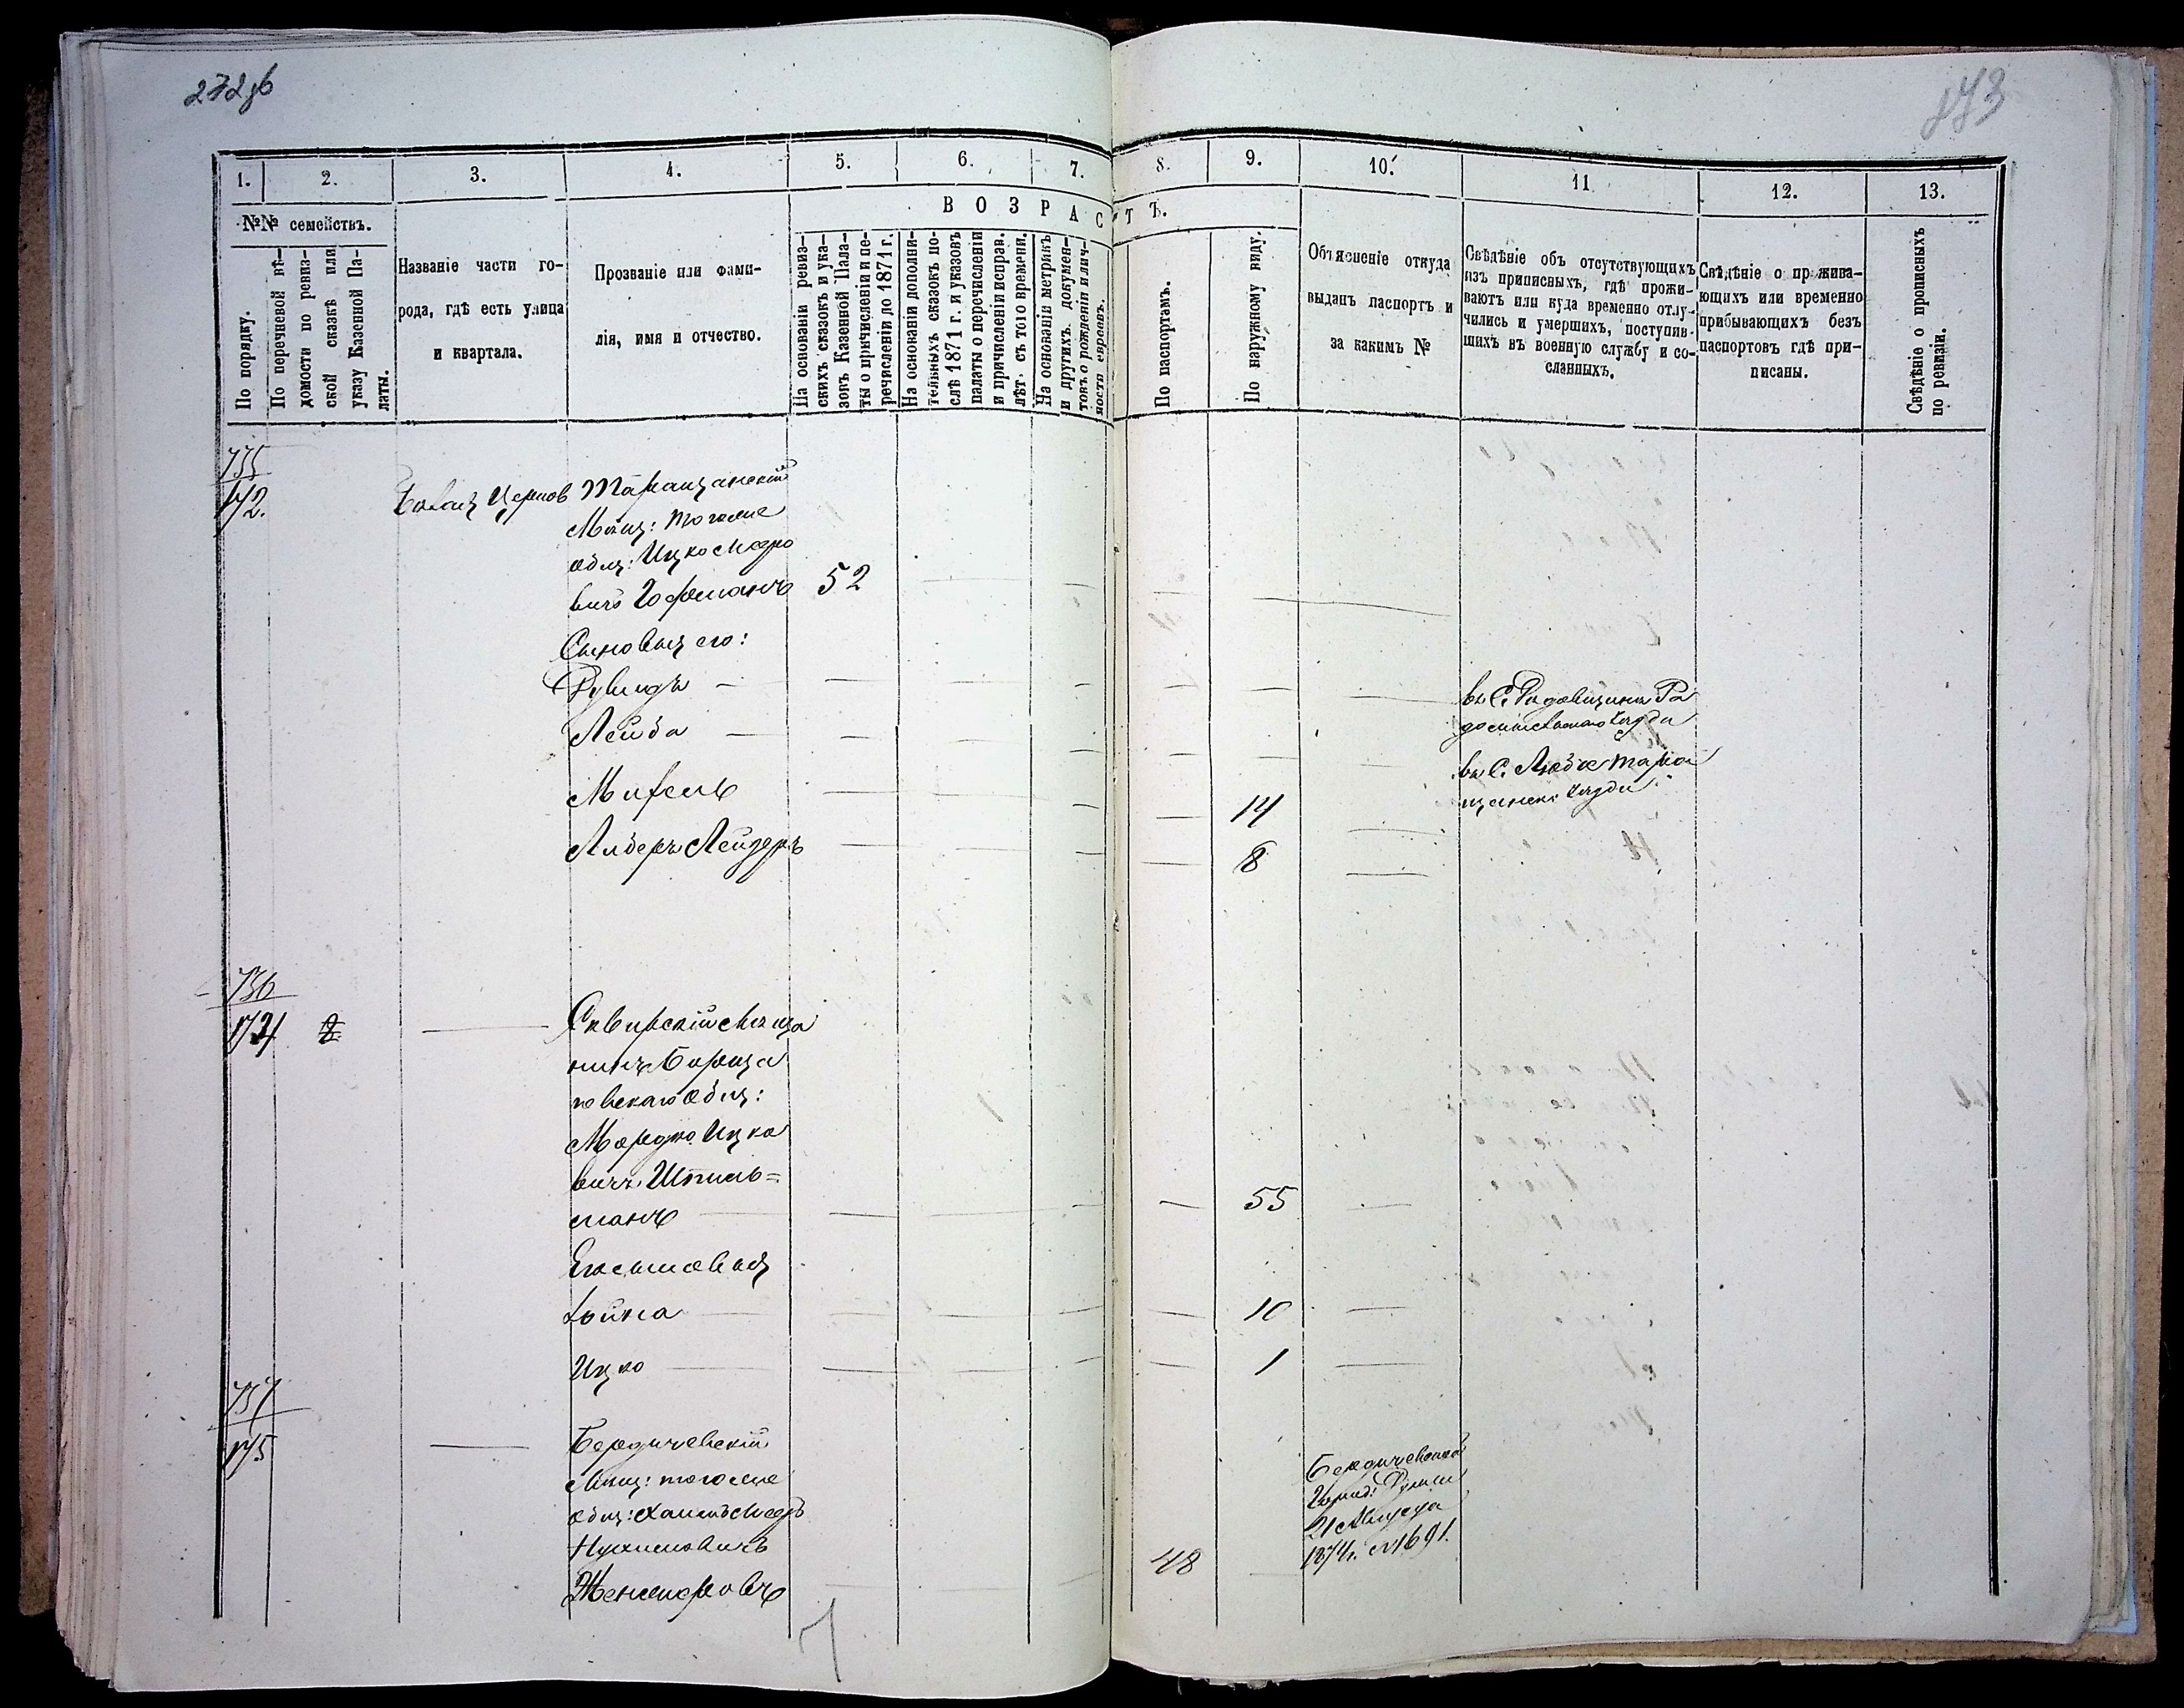 272об
173
1.
2.
3.
4.
5.
6.
7.
8.
9.
10.
11
12.
13.
№№ семействъ.
По порядку.
По перечневой вѣ-
домости по ревиз-
ской сказкѣ или
указу Казенной Па-
латы.
Названіе части го-
рода, гдѣ есть улица
и квартала.
Прозваніе или фами-
лія, имя и отчество.
ВОЗРАСТЪ.
На основаніи ревиз-
скихъ сказокъ и ука-
зовъ Казенной Пала-
ты о причисленіи и пе-
речисленіи до 1871 г.
На основаніи дополни-
тельныхъ сказокъ по-
слѣ 1871 г. и указовъ
палаты о перечисленіи
и причисленіи исправ.
лѣт. съ того времени.
На основаніи метрикъ
и другихъ докумен-
товъ о рожденіи и лич-
ности евреевъ.
По паспортамъ.
По наружному виду.
Объясненіе откуда
выданъ паспортъ и
за какимъ №
Свѣдѣніе объ отсутствующихъ
изъ приписныхъ, гдѣ прожи-
ваютъ или куда временно отлу-
чились и умершихъ, поступив-
шихъ въ военную службу и со-
сланныхъ.
Свѣдѣніе о прожива-
ющихъ или временно
прибывающихъ безъ
паспортовъ гдѣ при-
писаны.
Свѣдѣніе о прописныхъ
по ревизіи.
735
172.
Таращанскій
Мѣщ: тогоже
общ: Ицко Мошко
вичъ Гофманъ 52
Сыновья его:
Рувинъ — — — — — —
Лейба — — — — — —
Мифель — — — — 14 —
Либеръ Лейзеръ — — — 8 —
въ С.
въ С.
736
174 2 —
Сквирскій мѣща
нинъ
общ:
Мордко Ицко
вичъ Шпиль=
манъ — — — — — 55 —
Его сыновья
Хойна — — — — — 10 —
Ицко — — — — — 1 —
737
175 —
Бердичевскій
Мѣщ: тогоже
общ: Хаимъ
Нухимовичъ
48
Бердичевской
Город:
21 Августа
1874 г. №1691.